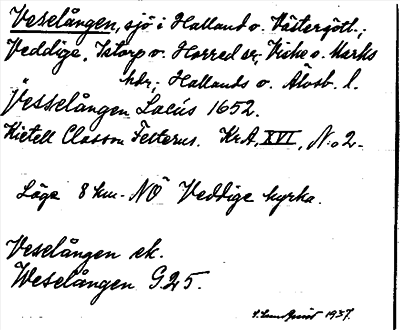 Veselången, sjö i Halland o. Västergötl.;
Veddige, Istorp o. Horred snr, Viske o. Marks
hdr; Hallands o. Älvsb. l.
"Vesselången Lacús 1652.
Kietell Classon Felterus. KrA, XVI, N:o 2.
Läge 8 km. NÖ Veddige kyrka.
Veselången ek.
Weselången G.25.
1937.